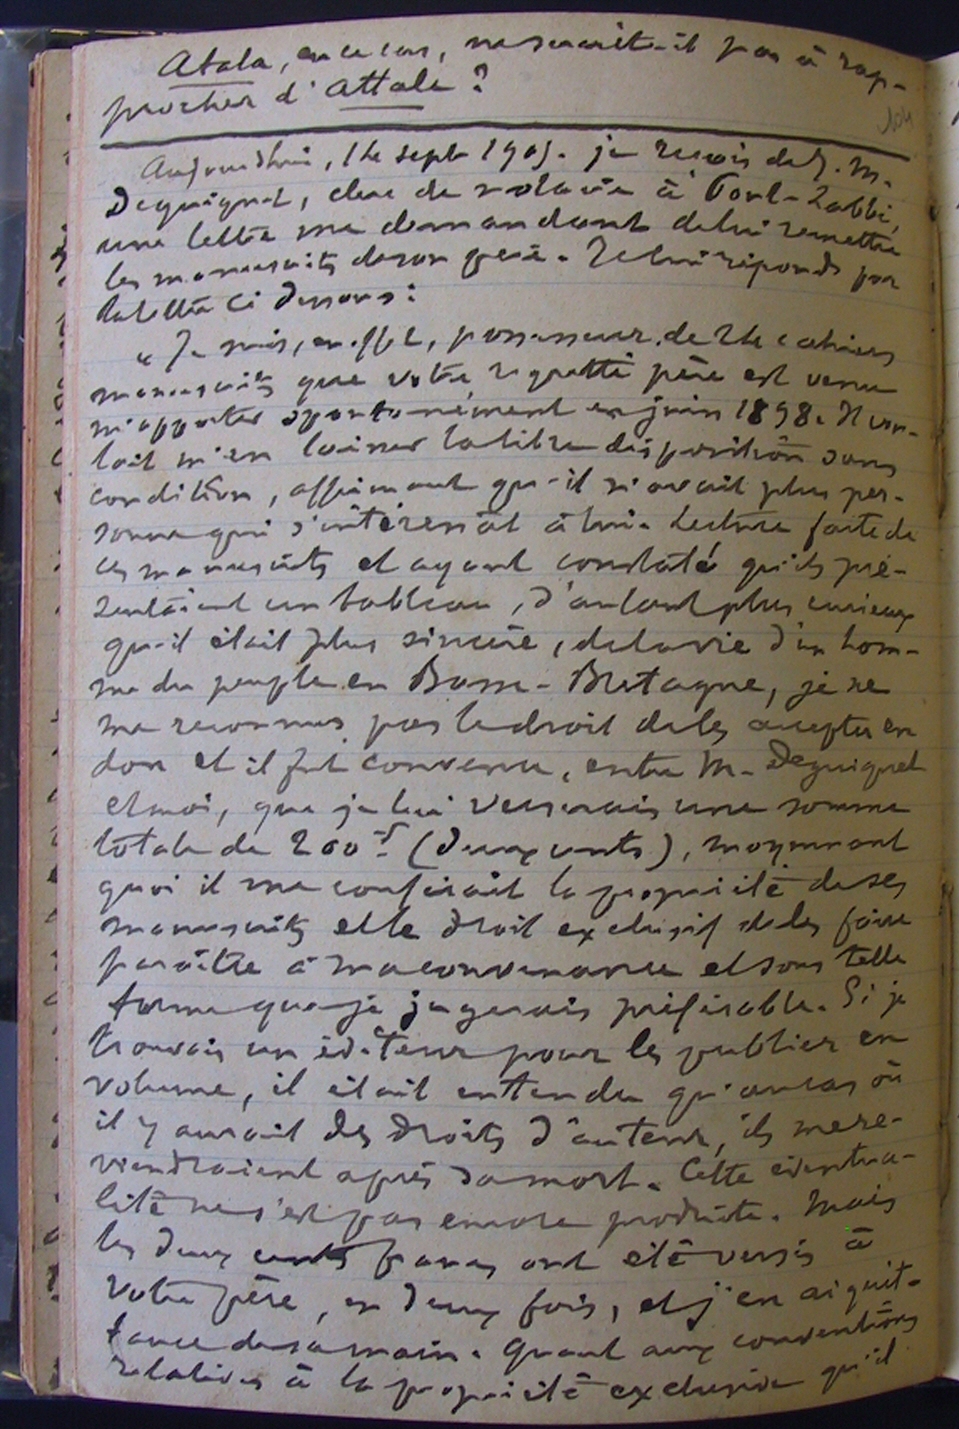 Atala, en ce cas, ne serait-il pas à rap-
procher d'Attale ?
104
Aujourd'hui, 14 sept 1905. je reçois de J. M.
Déguignet, clerc de notaire à Pont-Labbé,
une lettre me demandant de lui remettre
les manuscrits de son père. Je lui réponds par
la lettre ci dessous :
" Je suis, en effet, possesseur de 24 cahiers
manuscrits que votre regretté père est venu
m'apporter spontanément en juin 1898. Il vou-
lait m'en laisser la libre disposition sans
condition, affirmant qu'il n'avait plus per-
sonne qui s'intéressât à lui. Lecture faite de
ces manuscrits et ayant constaté qu'ils pré-
sentaient un tableau, d'autant plus curieux
qu'il était plus sincère, de la vie d'un hom-
me du peuple en Basse-Bretagne, je ne
me reconnus pas le droit de les accepter en
don et il fut convenu, entre M. Déguignet
et moi, que je lui verserais une somme
totale de 200 f (deux cents), moyennant
quoi il me conférait la propriété de ses
manuscrits et le droit exclusif de les faire
paraître à ma convenance et sous telle
forme que je jugerais préférable. Si je
trouvais un éditeur pour les publier en
volume, il était entendu qu'au cas où
il y aurait des droits d'auteur, ils me re-
viendraient après sa mort. Cette éventua-
lité ne s'est pas encore produite. Mais
les deux cents francs ont été versés à
votre père, en deux fois, et j'en ai quit-
tance de sa main. Quant aux conventions
relatives à la propriété exclusive qu'il